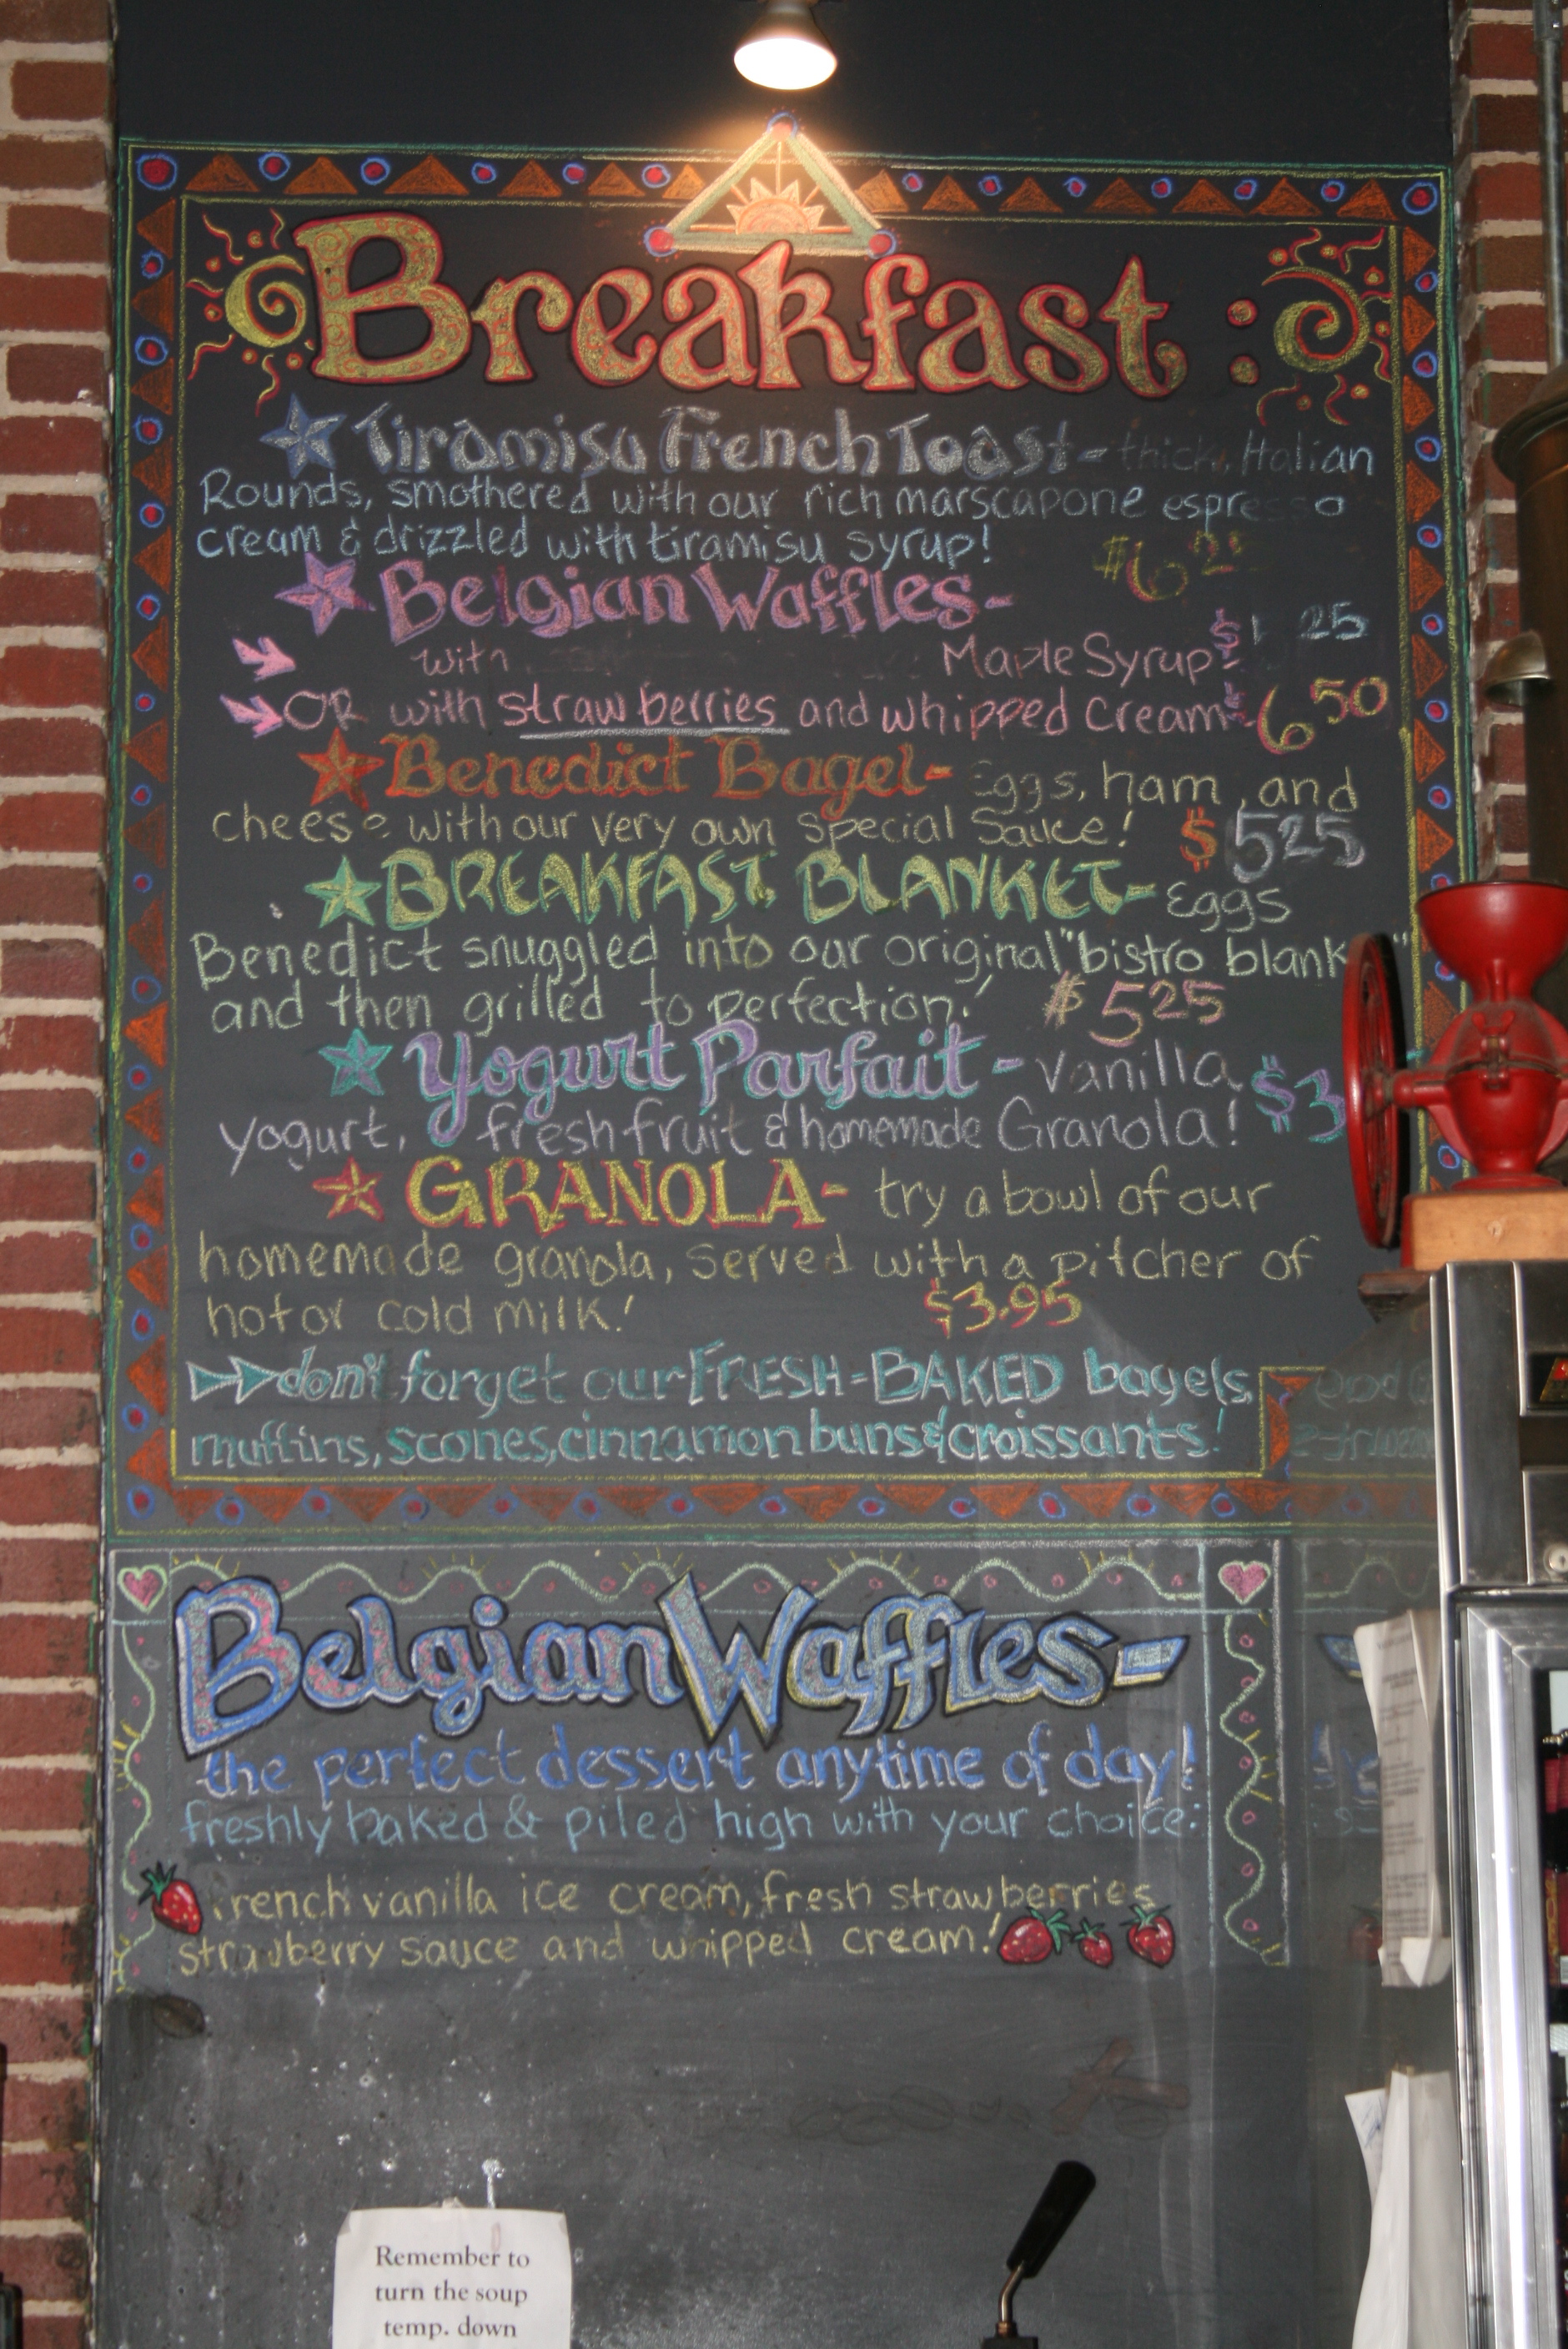 Breakfast:
Tiramisu French Toast - thick, Italian
Rounds, smothered with our rich marscapone espresso
cream & drizzled with tiramisu syrup!
$6.25
Belgian Waffles-
with Maple Syrup- $ 25
OR with strawberries and whipped cream- $6.50
Benedict Bagel- Eggs, ham, and
cheese with our very own special sauce! $525
BREAKFAST BLANKET- Eggs
Benedict snuggled into our original "bistro blank
and then grilled to perfection! $525
Yogurt Parfait - vanilla
yogurt, fresh fruit & homemade Granola! $3
GRANOLA- try a bowl of our
homemade granola, served with a pitcher of
hot or cold milk! $3.95
don't forget our FRESH-BAKED bagels,
muffins, scones, cinnamon buns & croissants!
Belgian Waffles-
the perfect dessert anytime of day!
freshly baked & piled high with your choice:
french vanilla ice cream, fresh strawberries
strawberry sauce and whipped cream!
Remember to
turn the soup
temp. down